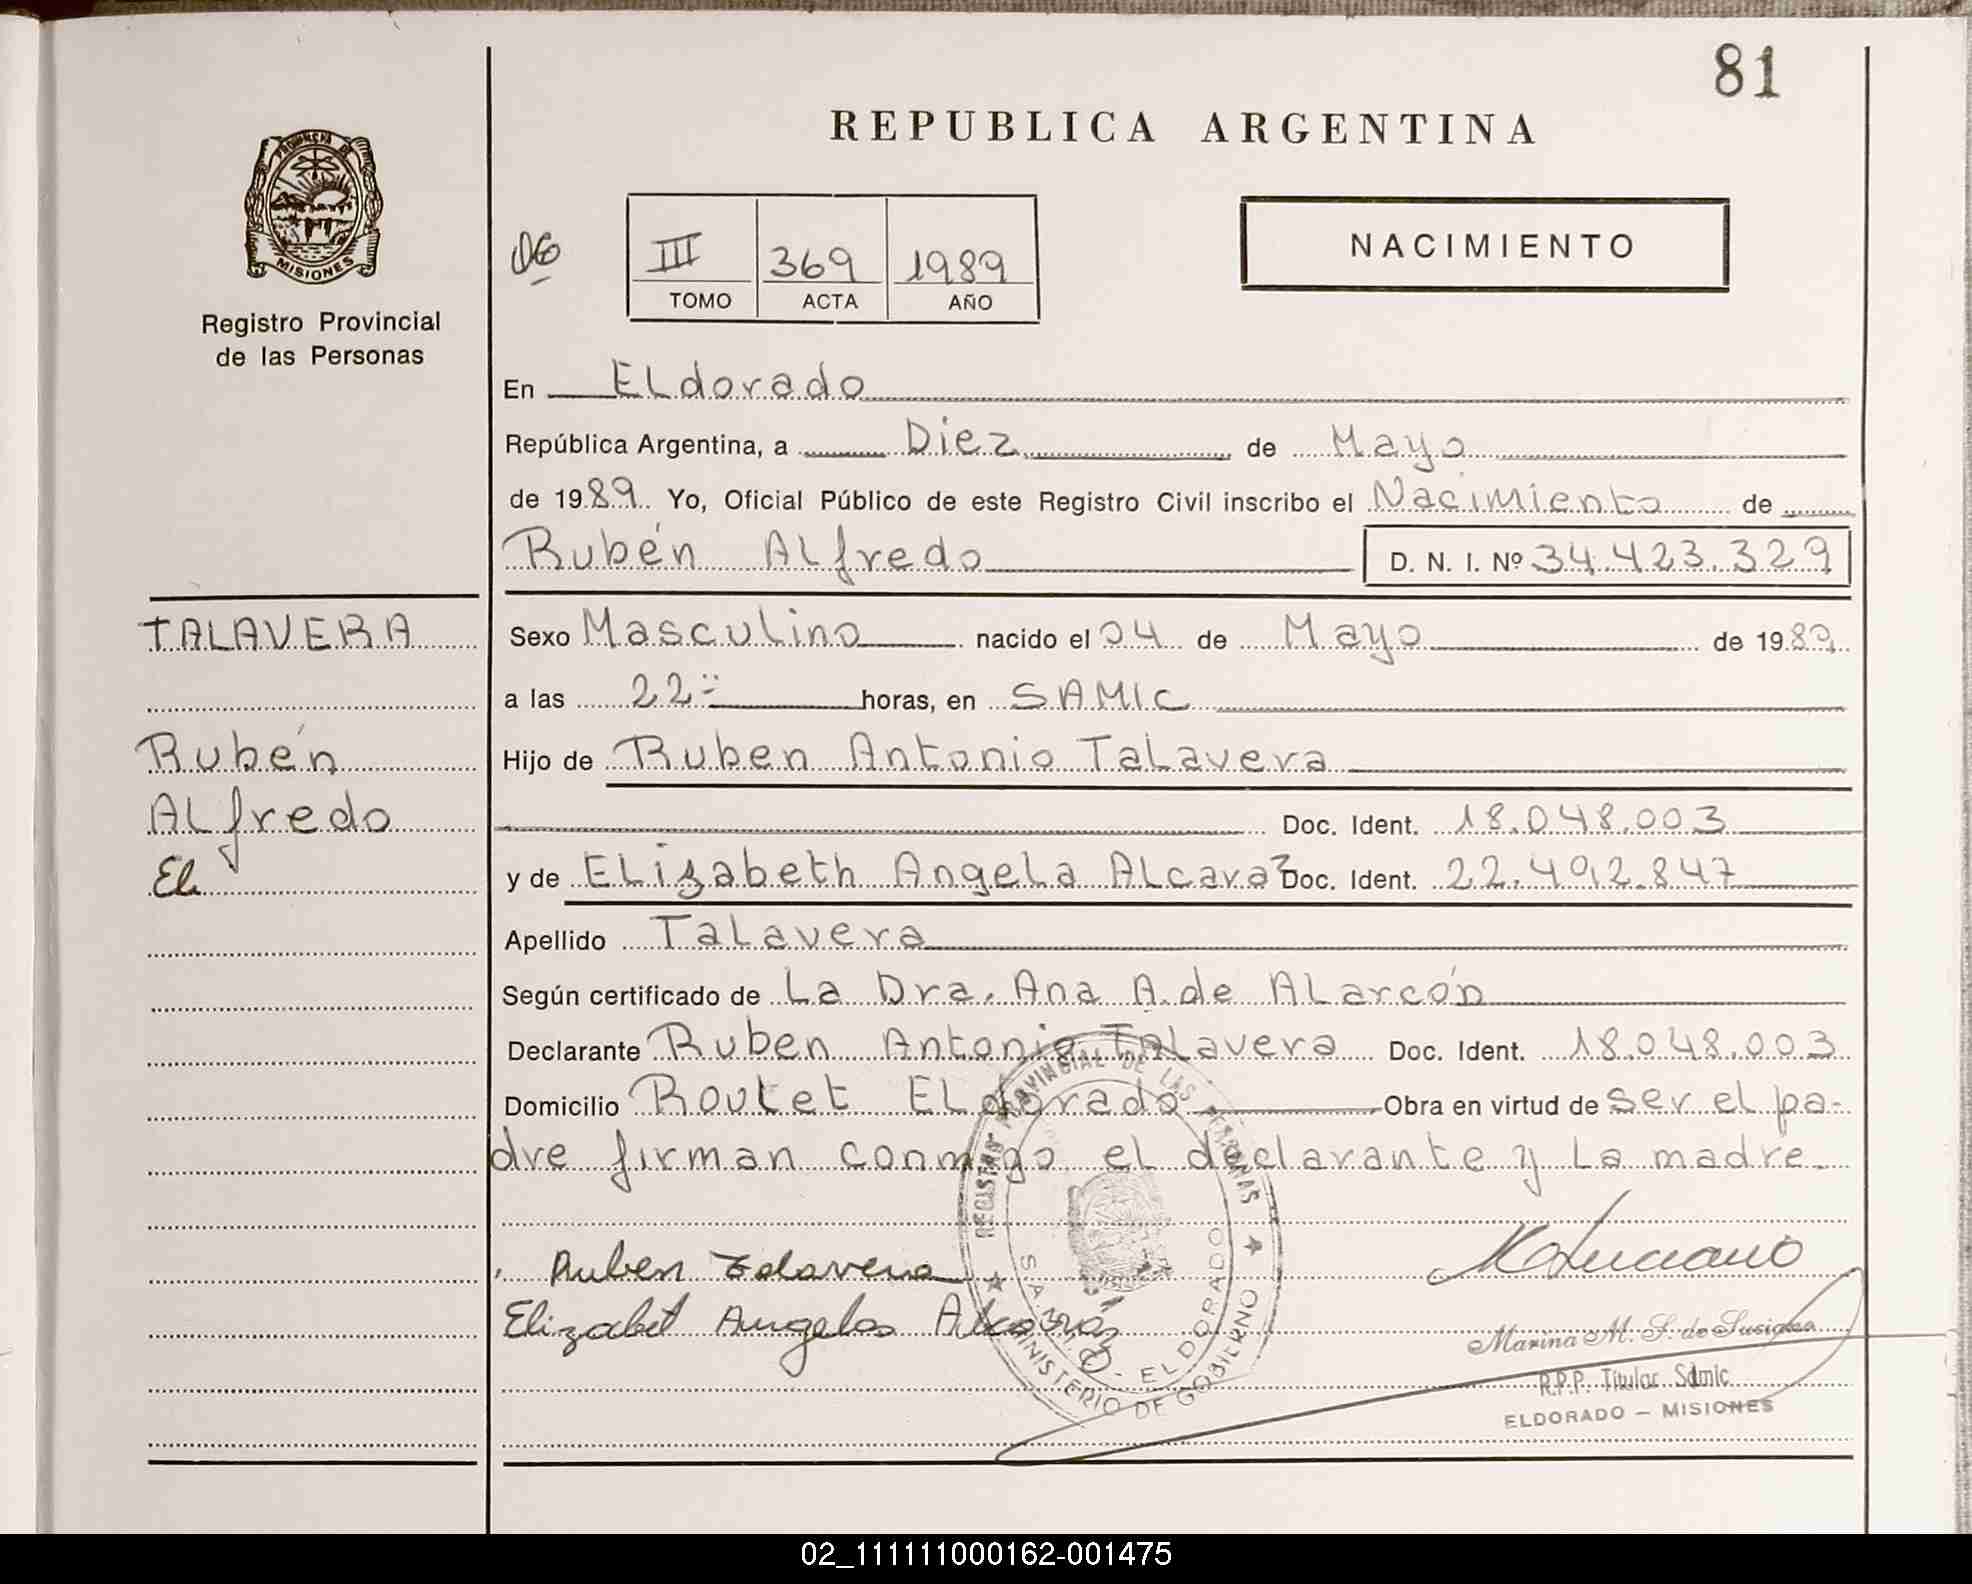 81
REPUBLICA ARGENTINA
PROVINCIA DE
MISIONES
Registro Provincial
de las Personas
III 369 1989
TOMO ACTA AÑO
NACIMIENTO
En Eldorado
República Argentina, a Diez de Mayo
de 1989. Yo, Oficial Público de este Registro Civil inscribo el Nacimiento de
Rubén Alfredo D. N. I. Nº 34.423.329
TALAVERA
Rubén
Alfredo
El
Sexo Masculino nacido el 04 de Mayo de 1989
a las 22 horas, en SAMIC
Hijo de Ruben Antonio Talavera
Doc. Ident. 18.048.003
y de Elizabeth Angela Alcaraz Doc. Ident. 22.492.847
Apellido Talavera
Según certificado de La Dra. Ana A. de Alarcón
Declarante Ruben Antonio Talavera Doc. Ident. 18.048.003
Domicilio Roulet Eldorado Obra en virtud de ser el pa-
dre firman conmigo el declarante y La madre.
Ruben Talavera
Elizabet Angela Alcaraz
REGISTRO PROVINCIAL DE LAS PERSONAS
ELDORADO
MINISTERIO DE GOBIERNO
Marina M. S. de
R.P.P. Titular Samic
ELDORADO - MISIONES
02_111111000162-001475